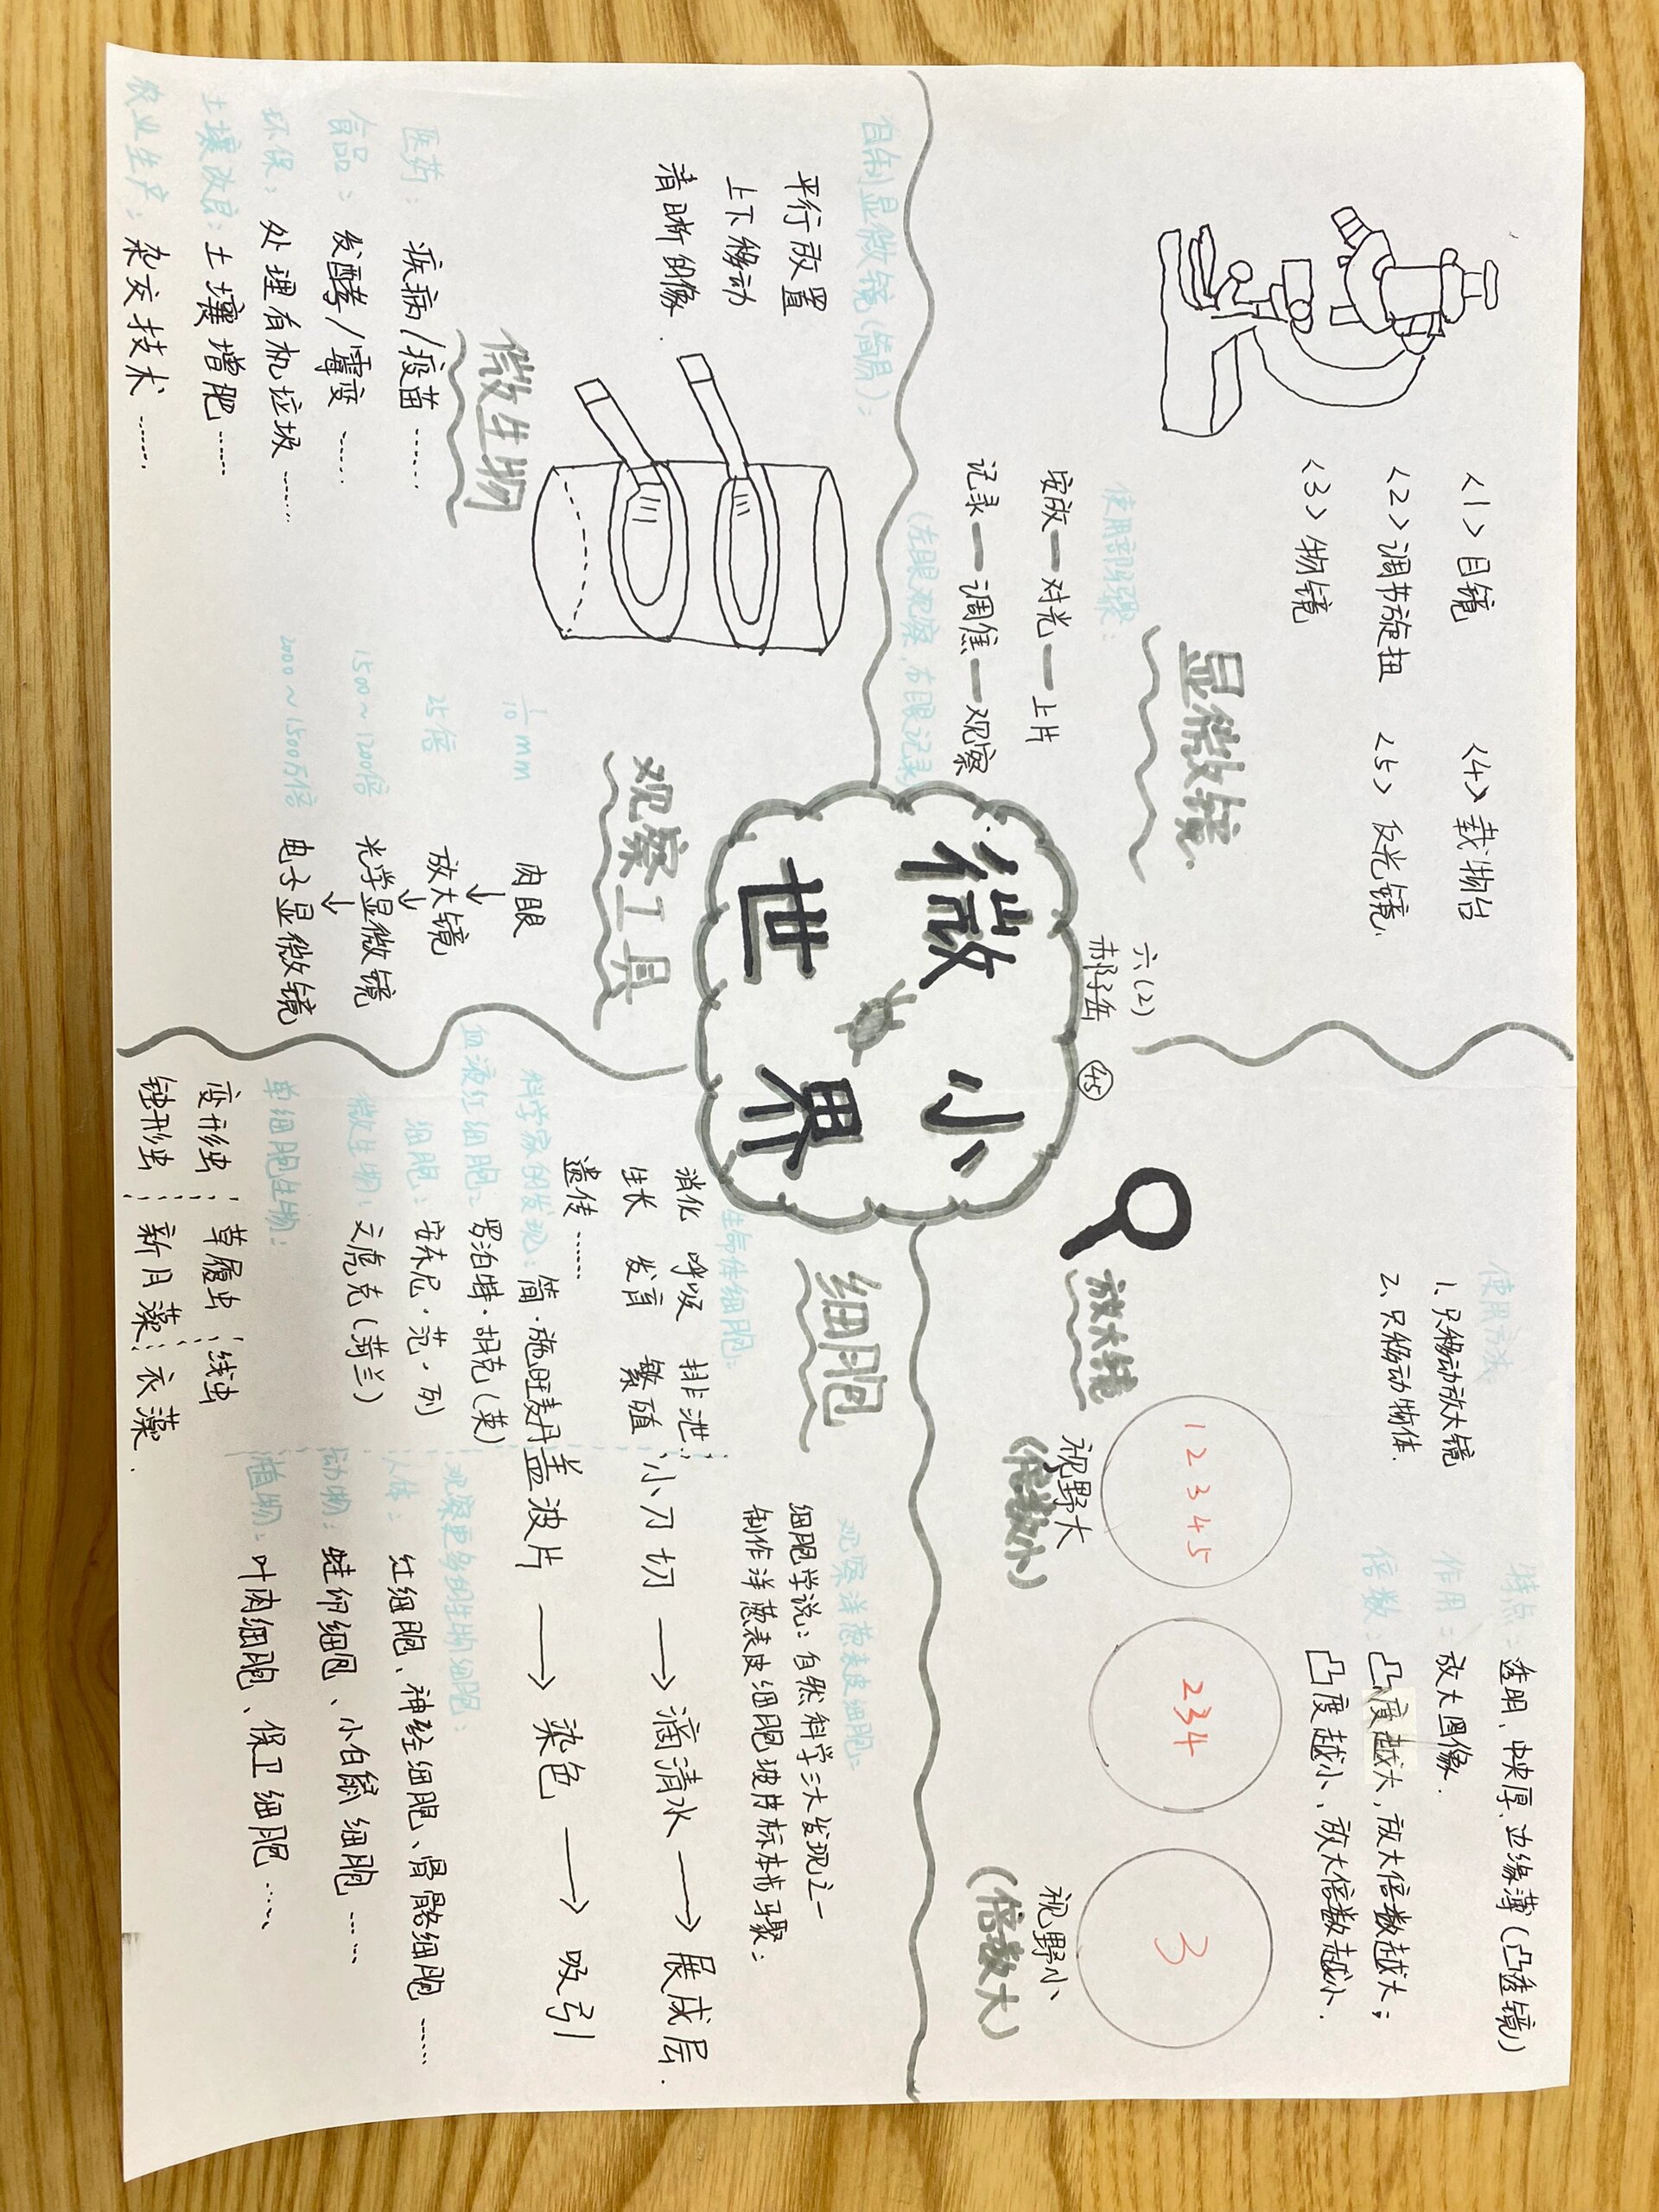 微小
世界
六(2)
郝子岳
㊺
显微镜
<1>目镜
<2>调节旋扭
<3>物镜
<4>载物台
<5>反光镜.
使用部骤:
安放—对光—上片
记录—调焦—观察
(左眼观察,右眼记录)
放大镜
使用方法
1.只移动放大镜
2.只移动物体.
特点:透明、中央厚、边缘薄(凸透镜)
作用:放大图像.
倍数:凸度越大,放大倍数越大;
凸度越小、放大倍数越小.
1 2 3 4 5
2 3 4
3
视野大
(倍数小)
视野小
(倍数大)
自制显微镜(简易):
平行放置
上下移动
清晰的像.
微生物
医药:疾病/疫苗……
食品:发酵/霉变……
环保:处理有机垃圾……
土壤改良:土壤增肥……
农业生产:杂交技术……
观察工具
1/10 mm 肉眼
↓
25倍 放大镜
↓
1500~1200倍 光学显微镜
↓
2000~1500万倍 电子显微镜
细胞
生命体细胞:
消化 呼吸 排泄
生长 发育 繁殖
遗传……
科学家的发现:简·施旺麦丹
血液红细胞:罗泊特·胡克(英)
细胞:安东尼·范·列
微生物:文虎克(荷兰)
单细胞生物:
变形虫 草履虫 线虫
钟形虫 新月藻 衣藻.
观察洋葱表皮细胞:
细胞学说:自然科学三大发现之一
制作洋葱表皮细胞玻片标本步骤:
小刀切→滴清水→展成层.
盖波片→染色→吸引
观察更多的生物细胞:
人体:红细胞、神经细胞、骨骼细胞……
动物:蛙卵细胞、小白鼠细胞……
植物:叶肉细胞、保卫细胞……